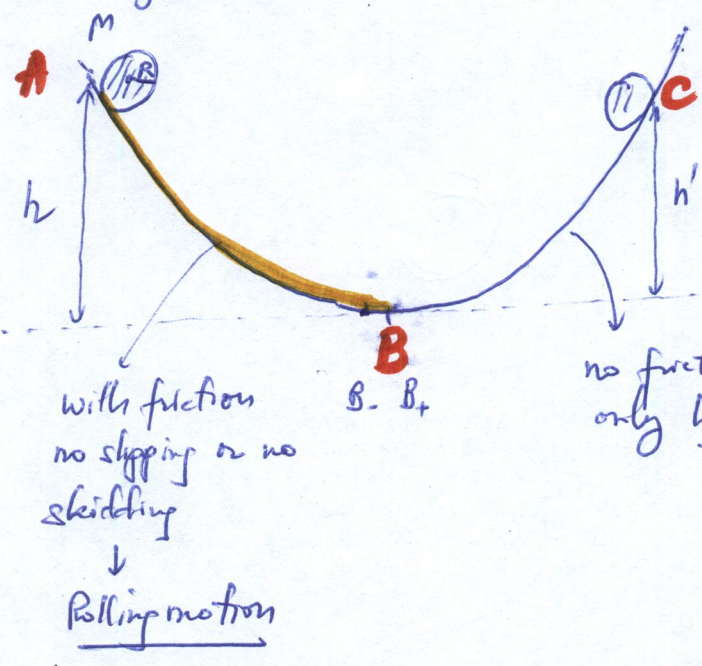 M
A
R
C
h
h'
B
B- B+
with friction
no slipping or no
skidding
Rolling motion
no frict
only